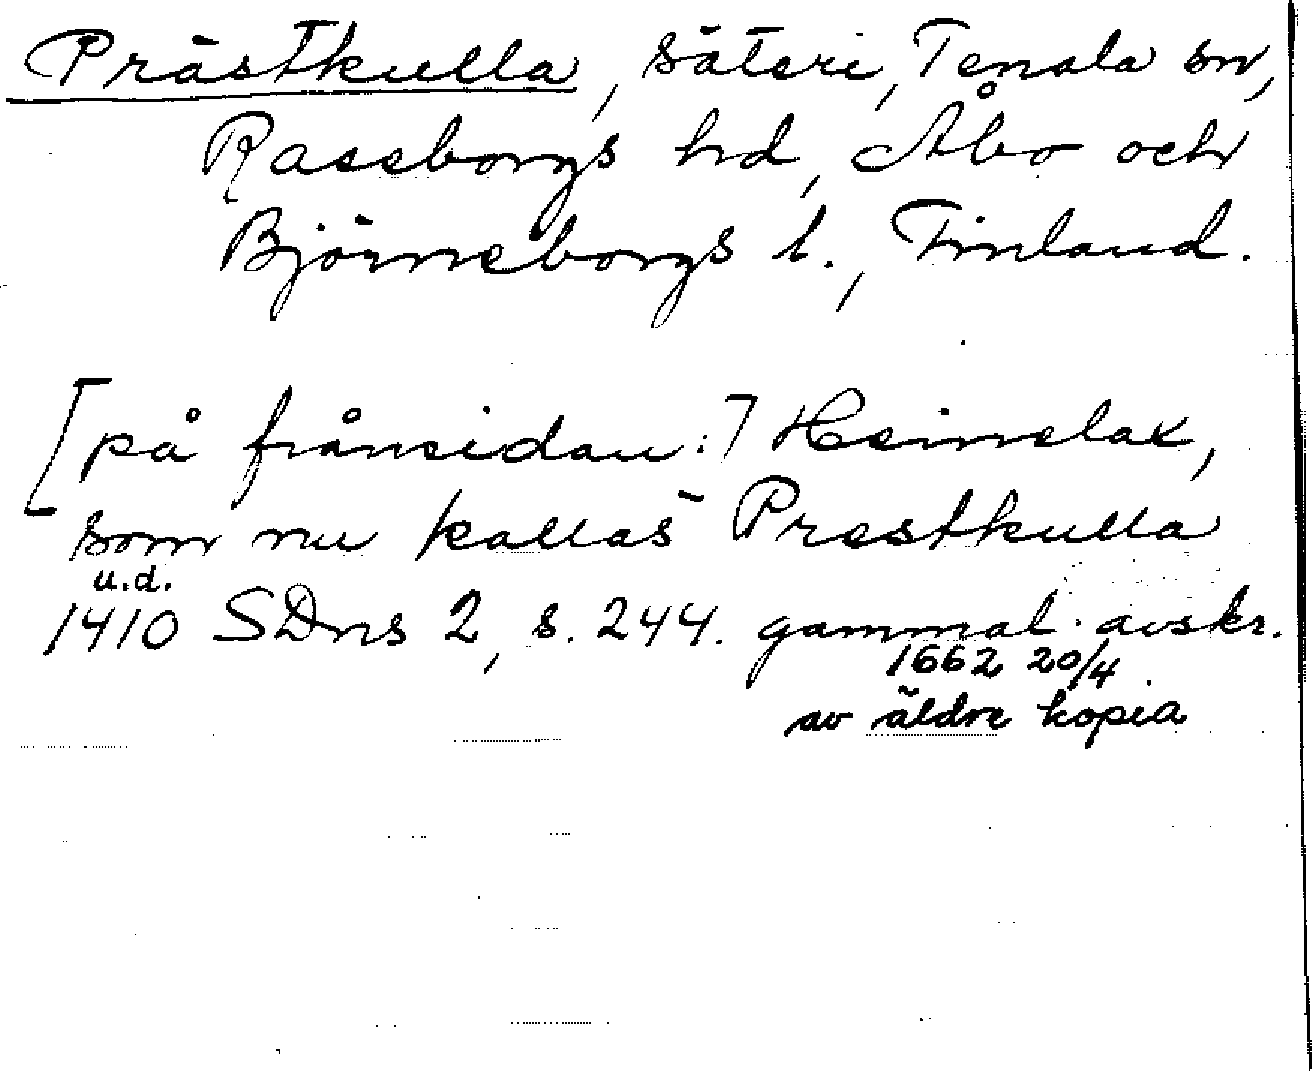 Prästkulla, säteri, Tenala sn,
Raseborgs hd, Åbo och
Björneborgs l., Finland.
[på frånsidan:] Heimelax,
som nu kallas Prestkulla
u.d.
1410 SDns 2, s. 244. gammal avskr.
1662 20/4
av äldre kopia